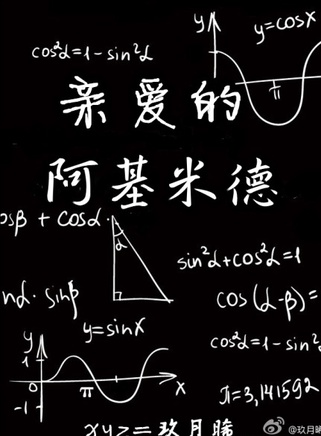 y
y=cosx
cos²α=1-sin²α
π
亲爱的
阿基米德
osβ + cosα·
α
sin²α+cos²α=1
nα·sinβ
cos(α-β)=
y=sinx
cos²α=1-sin²
y
1
0
π
x
π=3,141592
-1
xyz=玖月晞
@玖月晞